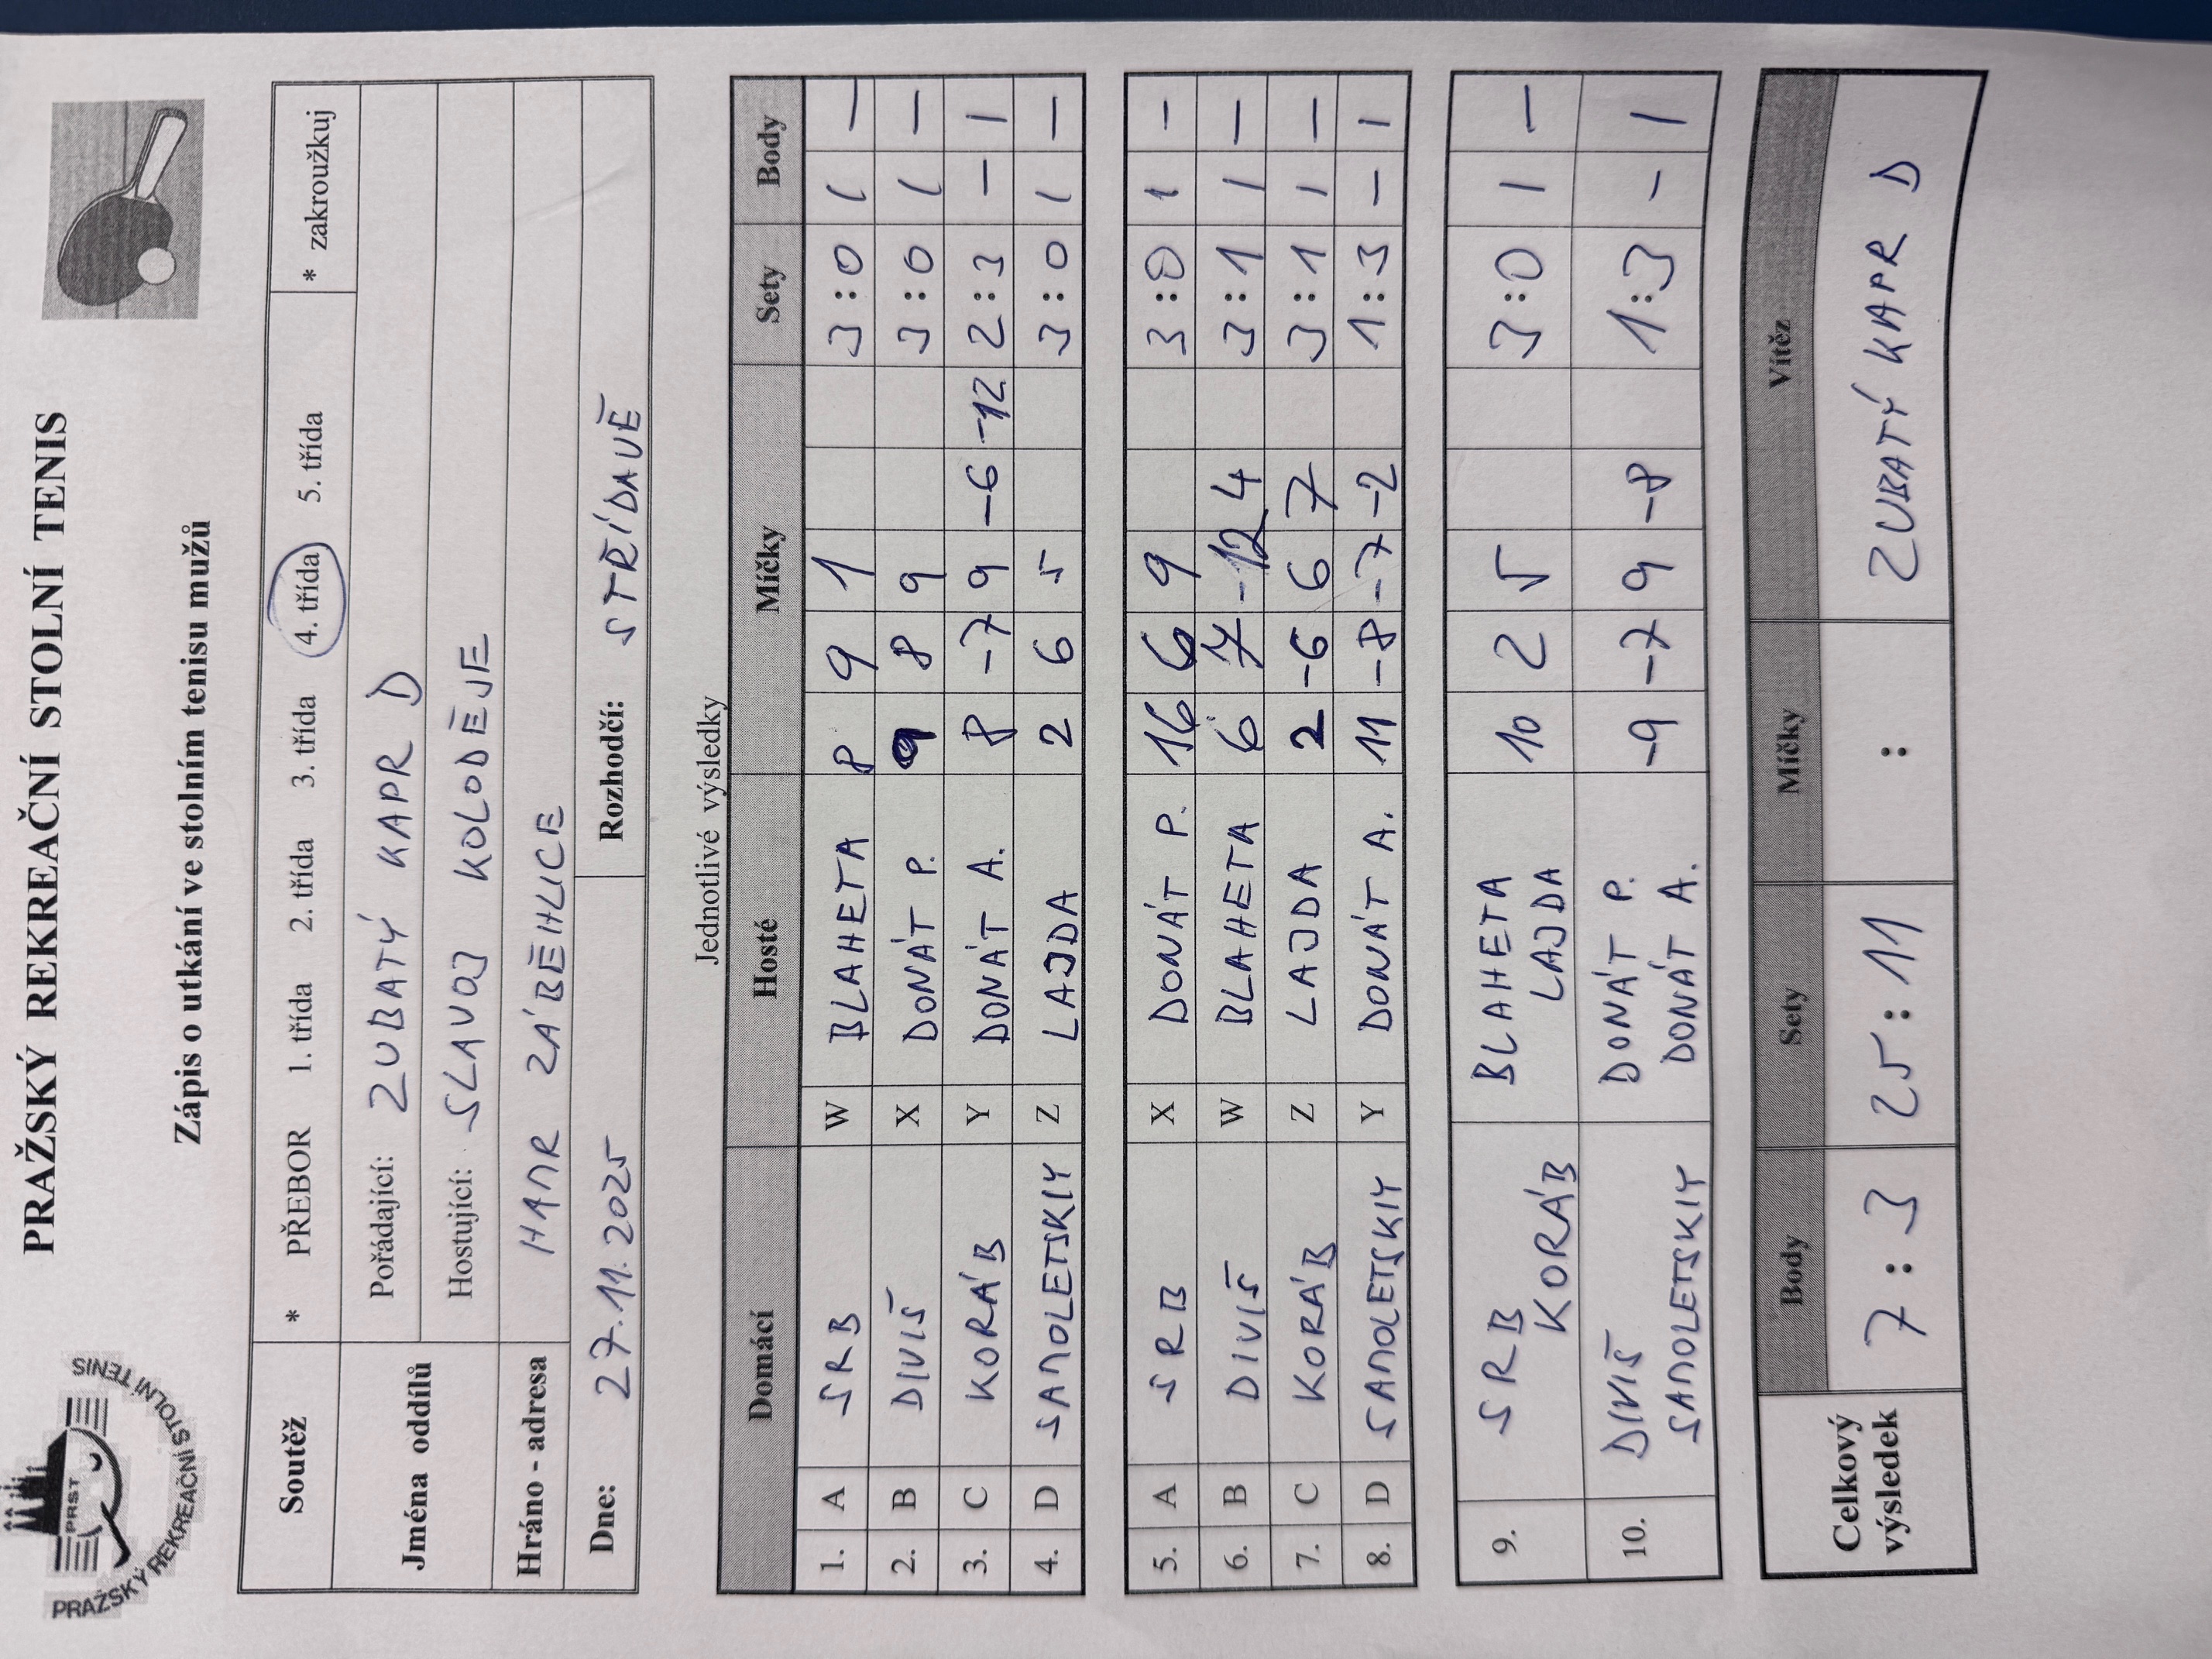 PRAŽSKÝ REKREAČNÍ STOLNÍ TENIS
PRST
PRAŽSKÝ REKREAČNÍ STOLNÍ TENIS
Zápis o utkání ve stolním tenisu mužů
Soutěž * PŘEBOR 1. třída 2. třída 3. třída 4. třída 5. třída * zakroužkuj
Jména oddílů Pořádající: ZUBATÝ KAPR D
Hostující: SLAVOJ KOLODĚJE
Hráno - adresa HAMR ZÁBĚHLICE
Dne: 27.11.2025 Rozhodčí: STŘÍDAVĚ
Jednotlivé výsledky
Domácí Hosté Míčky Sety Body
1. A SRB W BLAHETA 8 9 1 3:0 1 –
2. B DIVIŠ X DONÁT P. 9 8 9 3:0 1 –
3. C KORÁB Y DONÁT A. 8 -7 9 -6 -12 2:3 – 1
4. D SAMOLETSKIY Z LAJDA 2 6 5 3:0 1 –
5. A SRB X DONÁT P. 16 6 9 3:0 1 –
6. B DIVIŠ W BLAHETA 6 7 -12 4 3:1 1 –
7. C KORÁB Z LAJDA 2 -6 6 7 3:1 1 –
8. D SAMOLETSKIY Y DONÁT A. 11 -8 -7 -2 1:3 – 1
9. SRB BLAHETA 10 2 5 3:0 1 –
KORÁB LAJDA
10. DIVIŠ DONÁT P. -9 -7 9 -8 1:3 – 1
SAMOLETSKIY DONÁT A.
Celkový výsledek Body Sety Míčky Vítěz
7:3 25:11 : ZUBATÝ KAPR D